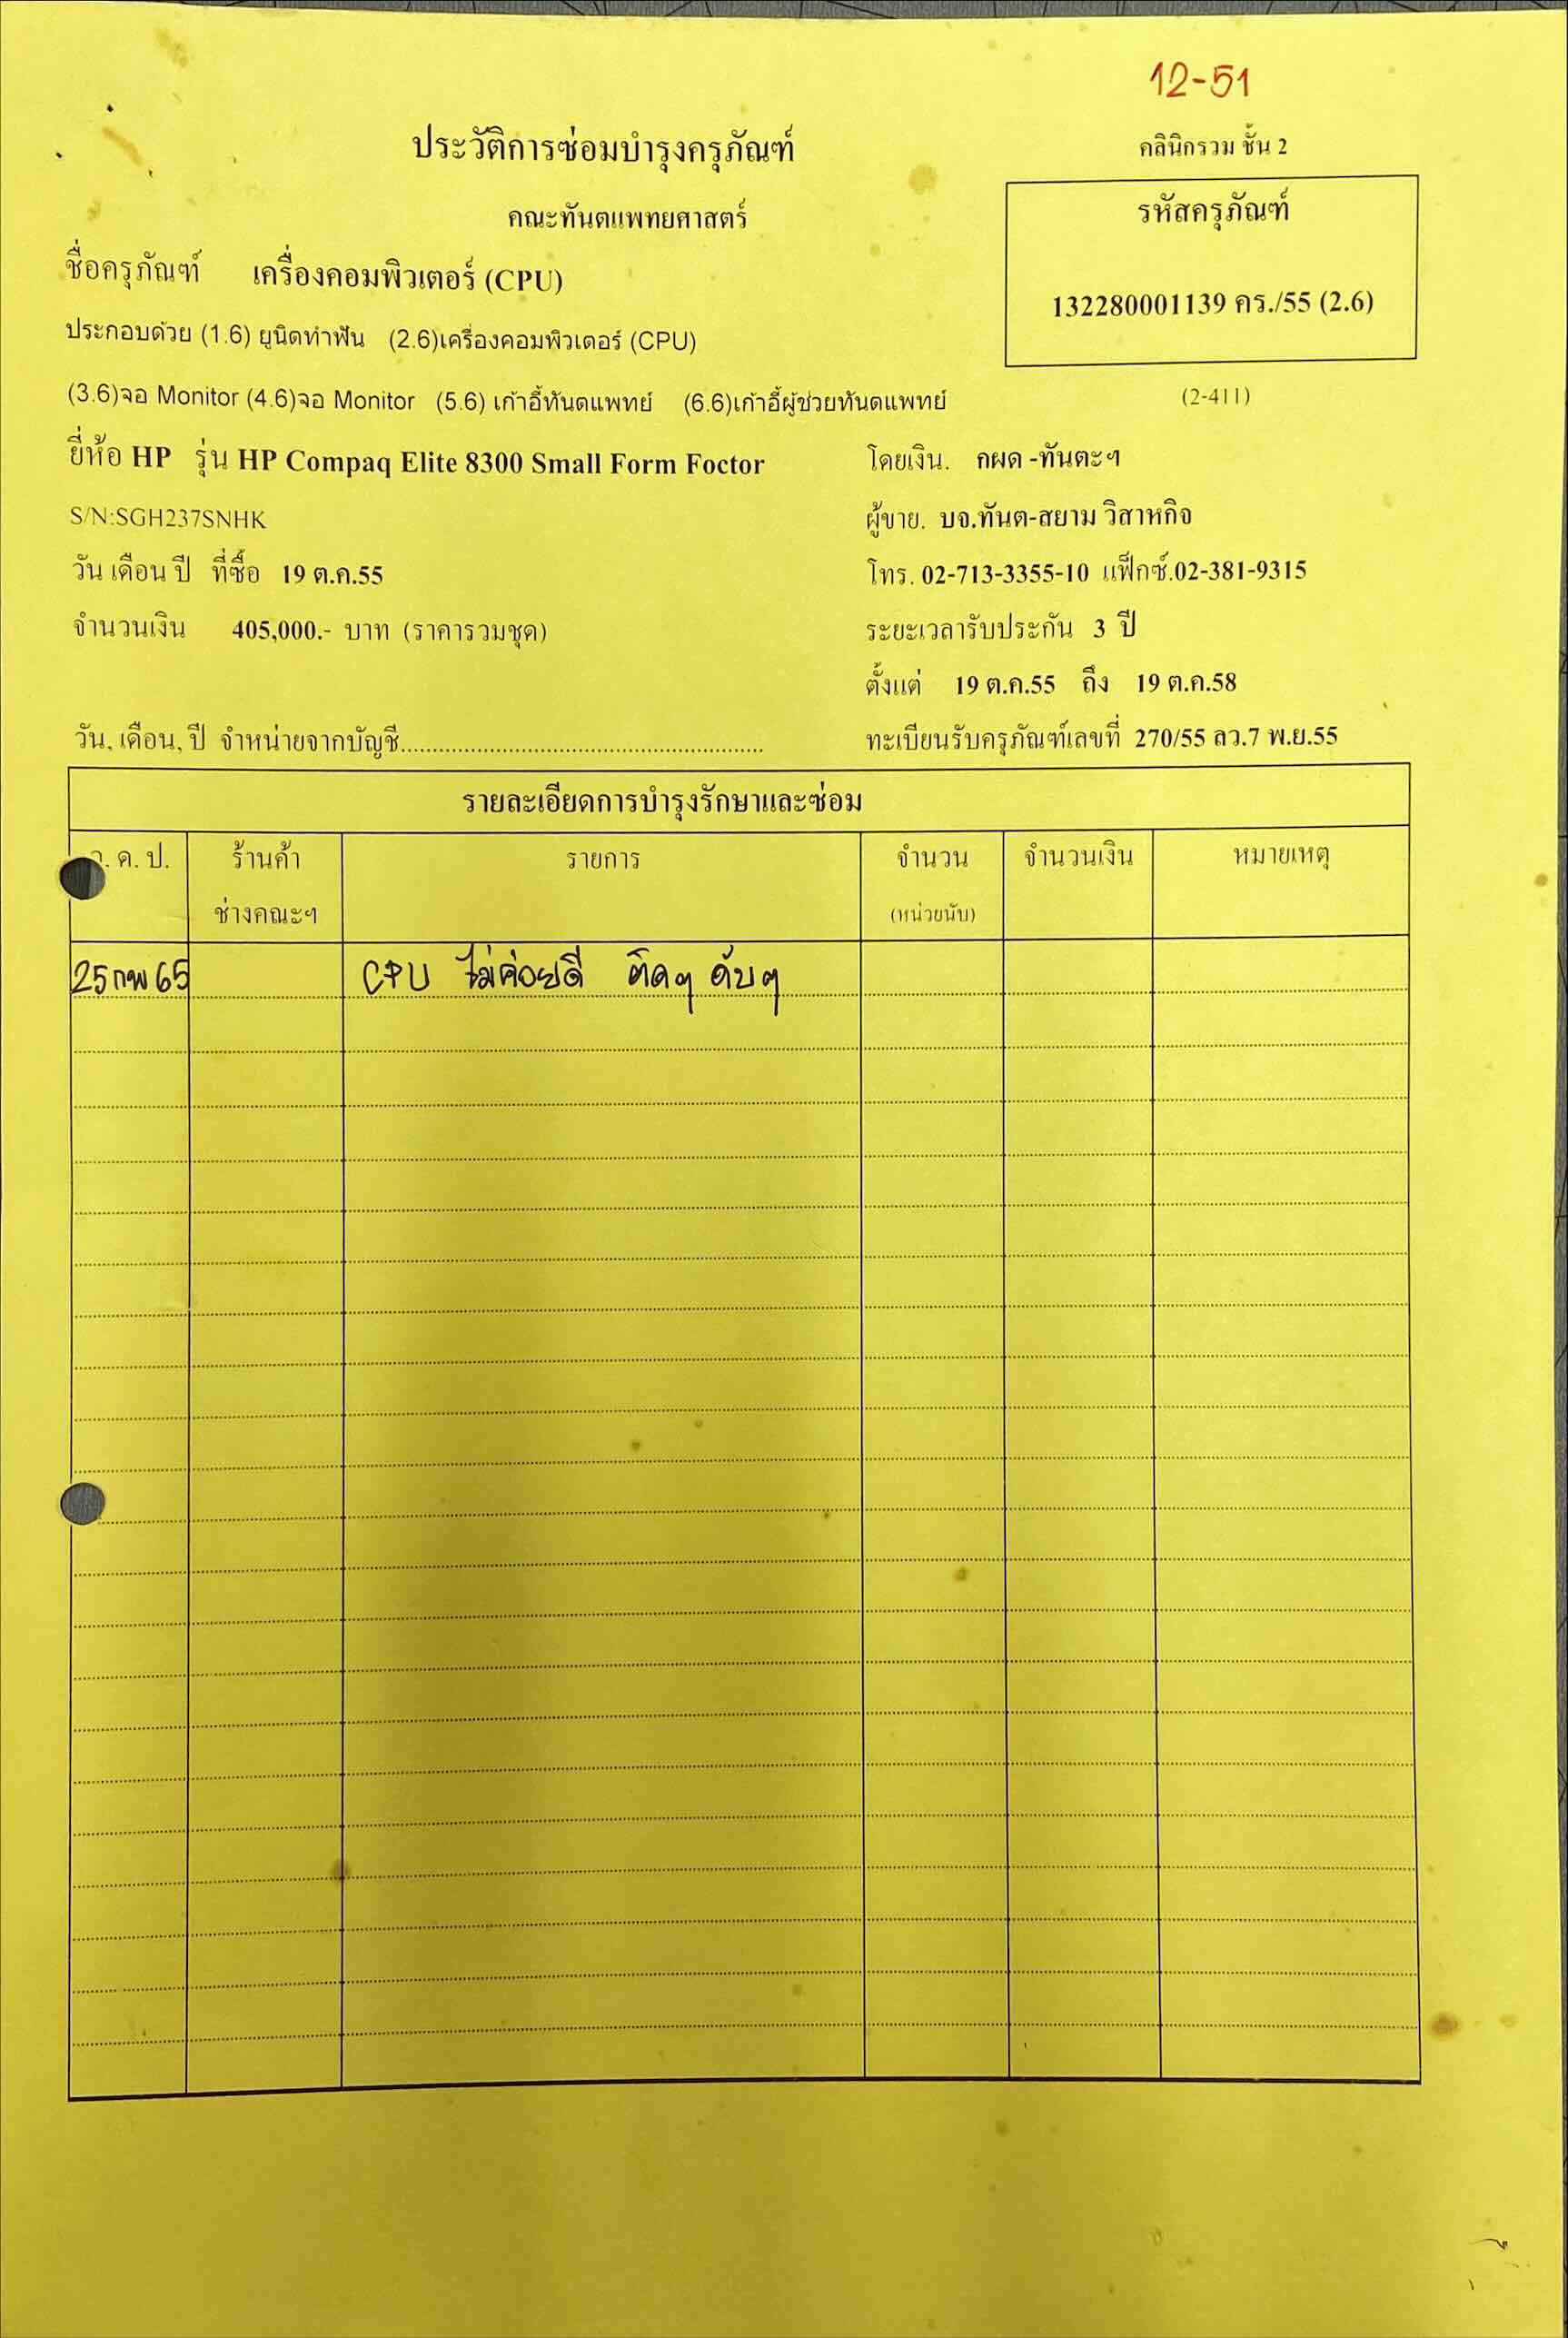 12-51
ประวัติการซ่อมบำรุงครุภัณฑ์
คลินิกรวม ชั้น 2
คณะทันตแพทยศาสตร์
รหัสครุภัณฑ์
132280001139 คร./55 (2.6)
(2-411)
ชื่อครุภัณฑ์ เครื่องคอมพิวเตอร์ (CPU)
ประกอบด้วย (1.6) ยูนิตทำฟัน (2.6)เครื่องคอมพิวเตอร์ (CPU)
(3.6)จอ Monitor (4.6)จอ Monitor (5.6) เก้าอี้ทันตแพทย์ (6.6)เก้าอี้ผู้ช่วยทันตแพทย์
ยี่ห้อ HP รุ่น HP Compaq Elite 8300 Small Form Foctor
โดยเงิน. กผด -ทันตะฯ
S/N:SGH237SNHK
ผู้ขาย. บจ.ทันต-สยาม วิสาหกิจ
วัน เดือน ปี ที่ซื้อ 19 ต.ค.55
โทร. 02-713-3355-10 แฟ็กซ์.02-381-9315
จำนวนเงิน 405,000.- บาท (ราคารวมชุด)
ระยะเวลารับประกัน 3 ปี
ตั้งแต่ 19 ต.ค.55 ถึง 19 ต.ค.58
วัน, เดือน, ปี จำหน่ายจากบัญชี........................................................
ทะเบียนรับครุภัณฑ์เลขที่ 270/55 ลว.7 พ.ย.55
รายละเอียดการบำรุงรักษาและซ่อม
ว. ค. ป. ร้านค้า รายการ จำนวน จำนวนเงิน หมายเหตุ
ช่างคณะฯ (หน่วยนับ)
25 กพ 65 CPU ไม่ค่อยดี ติดๆ ดับๆ